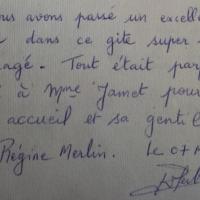 us avons passé un excelle
dans ce gite super
agé. Tout était par
à Mme Jamet pour
accueil et sa gentil
Régine Merlin. Le 07